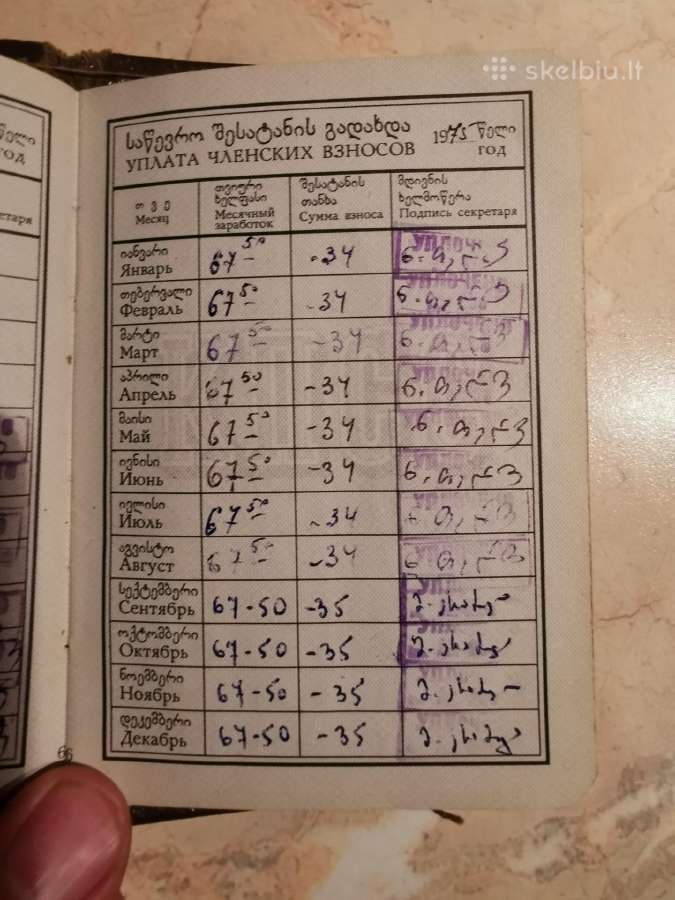 skelbiu.lt
საწევრო შესატანის გადახდა 1975 წელი
УПЛАТА ЧЛЕНСКИХ ВЗНОСОВ год
თვე
Месяц
თვიური
ხელფასი
Месячный
заработок
შესატანის
თანხა
Сумма взноса
მდივნის
ხელმოწერა
Подпись секретаря
იანვარი
Январь 67 50 -34
თებერვალი
Февраль 67 50 -34
მარტი
Март 67 50 -34
აპრილი
Апрель 67 50 -34
მაისი
Май 67 50 -34
ივნისი
Июнь 67 50 -34
ივლისი
Июль 67 50 -34
აგვისტო
Август 67 50 -34
სექტემბერი
Сентябрь 67-50 -35
ოქტომბერი
Октябрь 67-50 -35
ნოემბერი
Ноябрь 67-50 -35
დეკემბერი
Декабрь 67-50 -35
66
წელი
год